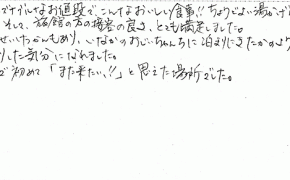 ズナブルなお値段で、こんなおいしい食事!! ちょうどよい湯かげ
そして、旅館の方の接客の良さ、とても満足しました。
ぜいたくかんもあり、いなかのおじいちゃんちに泊まりにきたかのよう
りした気分になれました。
初めて「また来たい!!」と思えた場所でした。